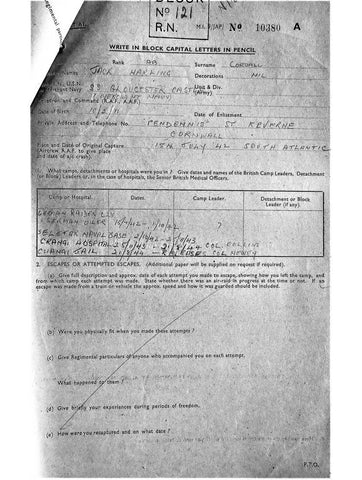 BLOCK
No 121
R.N.
M.I. 9/JAP/ No 10380 A
WRITE IN BLOCK CAPITAL LETTERS IN PENCIL
Rank AB Surname CORDALL
Names JACK HAWKING Decorations NIL
SS GLOUCESTER CASTLE Unit & Div. (Army)
MERCHANT NAVY
Date of Birth Date of Enlistment
Private Address and Telephone No. "PENDENNIS" ST KEVERNE
CORNWALL
Place and Date of Original Capture 15TH JULY 42 SOUTH ATLANTIC
(Aircrew R.A.F. to give place
and date of air crash).
1. What camps, detachments or hospitals were you in? Give dates and names of the British Camp Leaders, Detachment
or Block Leaders or, in hospital cases, the Senior British Medical Officers.
Camp or Hospital. Dates. Camp Leader. Detachment or Block Leader (if any).
GERMAN RAIDER
GERMAN OILER ?
SELETAR NAVAL BASE
CRANJI HOSPITAL COL COLLINS
CHANGI JAIL COL NEWEY
2. ESCAPES OR ATTEMPTED ESCAPES. (Additional paper will be supplied on request if required).
(a) Give full description and approx. date of each attempt you made to escape, showing how you left the camp, and
from which camp each attempt was made. State whether there was an air-raid in progress at the time or not. If an
escape was made from a train or vehicle the approx. speed and how it was guarded should be included.
(b) Were you physically fit when you made these attempts ?
(c) Give Regimental particulars of anyone who accompanied you on each attempt.
What happened to them ?
(d) Give briefly your experiences during periods of freedom.
(e) How were you recaptured and on what date ?
P.T.O.